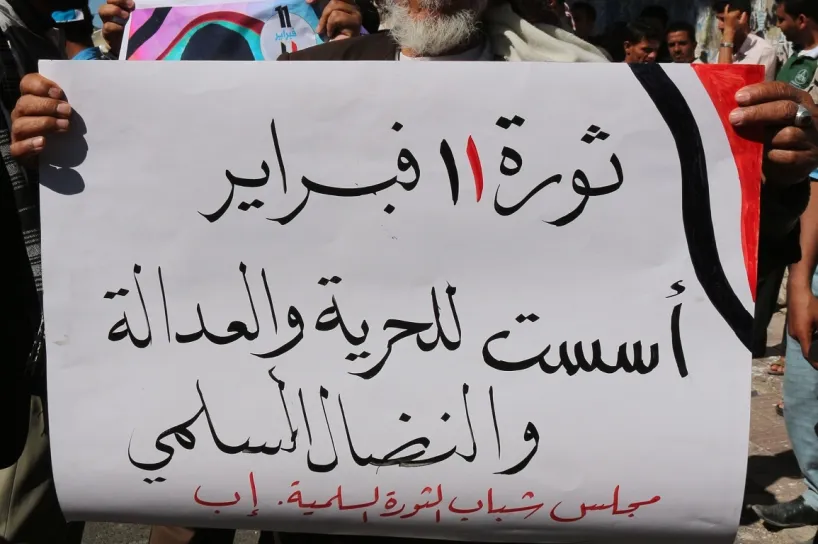 11
فبراير
ثورة ١١ فبراير
أسست للحرية والعدالة
والنضال السلمي
مجلس شباب الثورة السلمية. إب